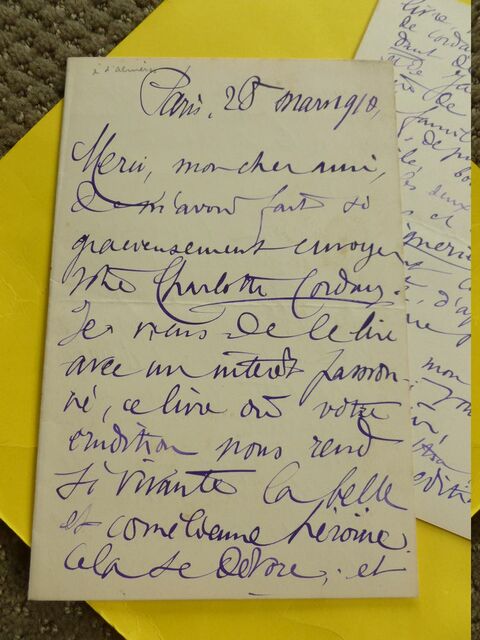 à d'Almeras
Paris, 28 mars 1910,
Merci, mon cher ami,
de m'avoir fait si
gracieusement envoyer
votre Charlotte Corday.
Je viens de le lire
avec un intérêt passion-
né, ce livre où votre
érudition nous rend
si vivante la belle
et cornélienne héroïne.
Cela se dévore, et
livre
de Corday
dont
de
famil
de
les deux
et
méri
d'a
mon